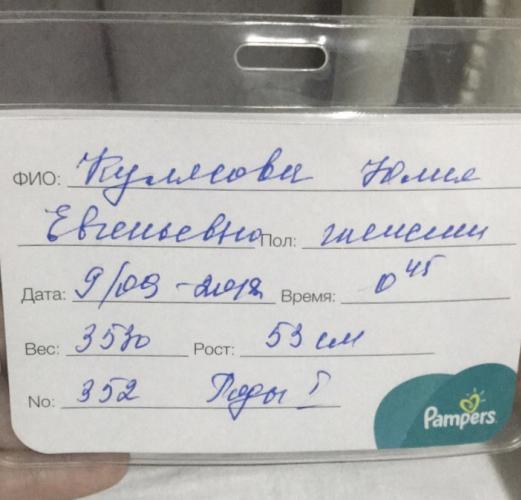 ФИО: Кулясова Юлия
Евгеньевна Пол: женский
Дата: 9/09-2018 Время: 0 45
Вес: 3530 Рост: 53 см
No: 352 Роды I
Pampers